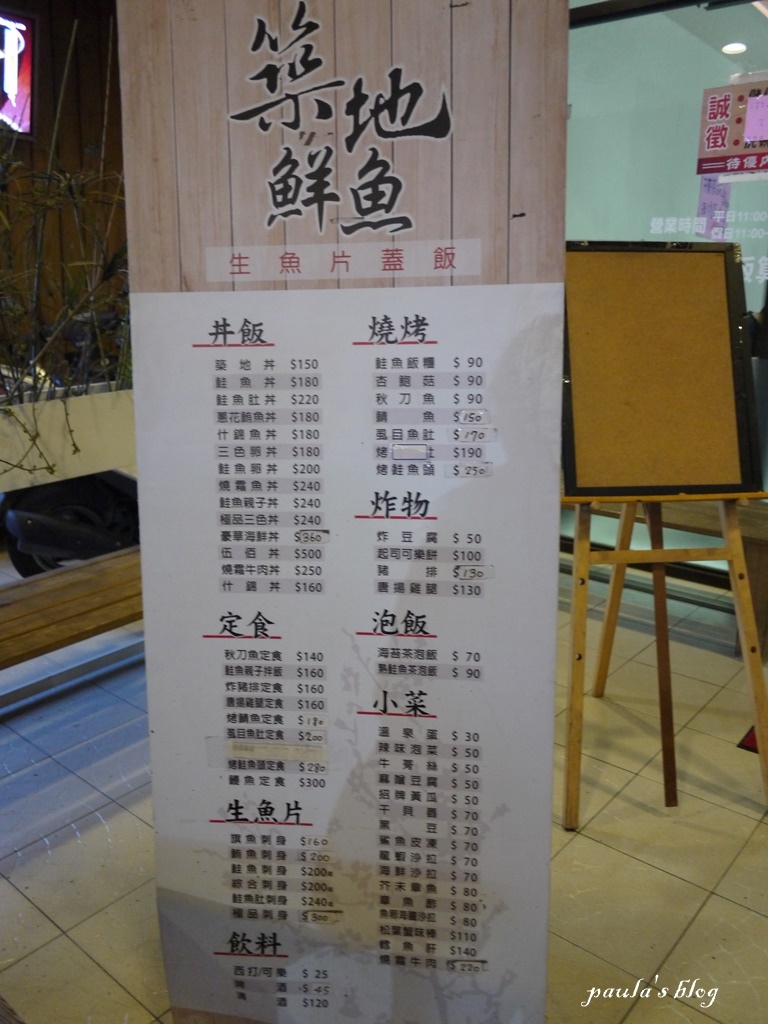 築地
鮮魚
生魚片蓋飯
丼飯
築地丼 $150
鮭魚丼 $180
鮭魚肚丼 $220
蔥花鮪魚丼 $180
什錦魚丼 $180
三色卵丼 $180
鮭魚卵丼 $200
燒霜魚丼 $240
鮭魚親子丼 $240
極品三色丼 $240
豪華海鮮丼 $360
伍佰丼 $500
燒霜牛肉丼 $250
什錦丼 $160
定食
秋刀魚定食 $140
鮭魚親子拌飯 $160
炸豬排定食 $160
唐揚雞腿定食 $160
烤鯖魚定食 $180
虱目魚肚定食 $200
烤鮭魚頭定食 $280
鰻魚定食 $300
生魚片
旗魚刺身 $160
鮪魚刺身 $200
鮭魚刺身 $200
綜合刺身 $200
鮭魚肚刺身 $240
極品刺身 $300
飲料
西打/可樂 $25
啤酒 $45
清酒 $120
燒烤
鮭魚飯糰 $90
杏鮑菇 $90
秋刀魚 $90
鯖魚 $150
虱目魚肚 $170
烤 肚 $190
烤鮭魚頭 $250
炸物
炸豆腐 $50
起司可樂餅 $100
豬排 $130
唐揚雞腿 $130
泡飯
海苔茶泡飯 $70
熟鮭魚茶泡飯 $90
小菜
溫泉蛋 $30
辣味泡菜 $50
牛蒡絲 $50
麻釀豆腐 $50
招牌黃瓜 $50
干貝唇 $70
黑豆 $70
鯊魚皮凍 $70
龍蝦沙拉 $70
海鮮沙拉 $70
芥末章魚 $80
章魚酢 $80
魚卵海鮮沙拉 $80
松葉蟹味棒 $110
鱈魚肝 $140
燒霜牛肉 $220
誠徵
待優
營業時間 平日11:00-
假日11:00-
paula's blog